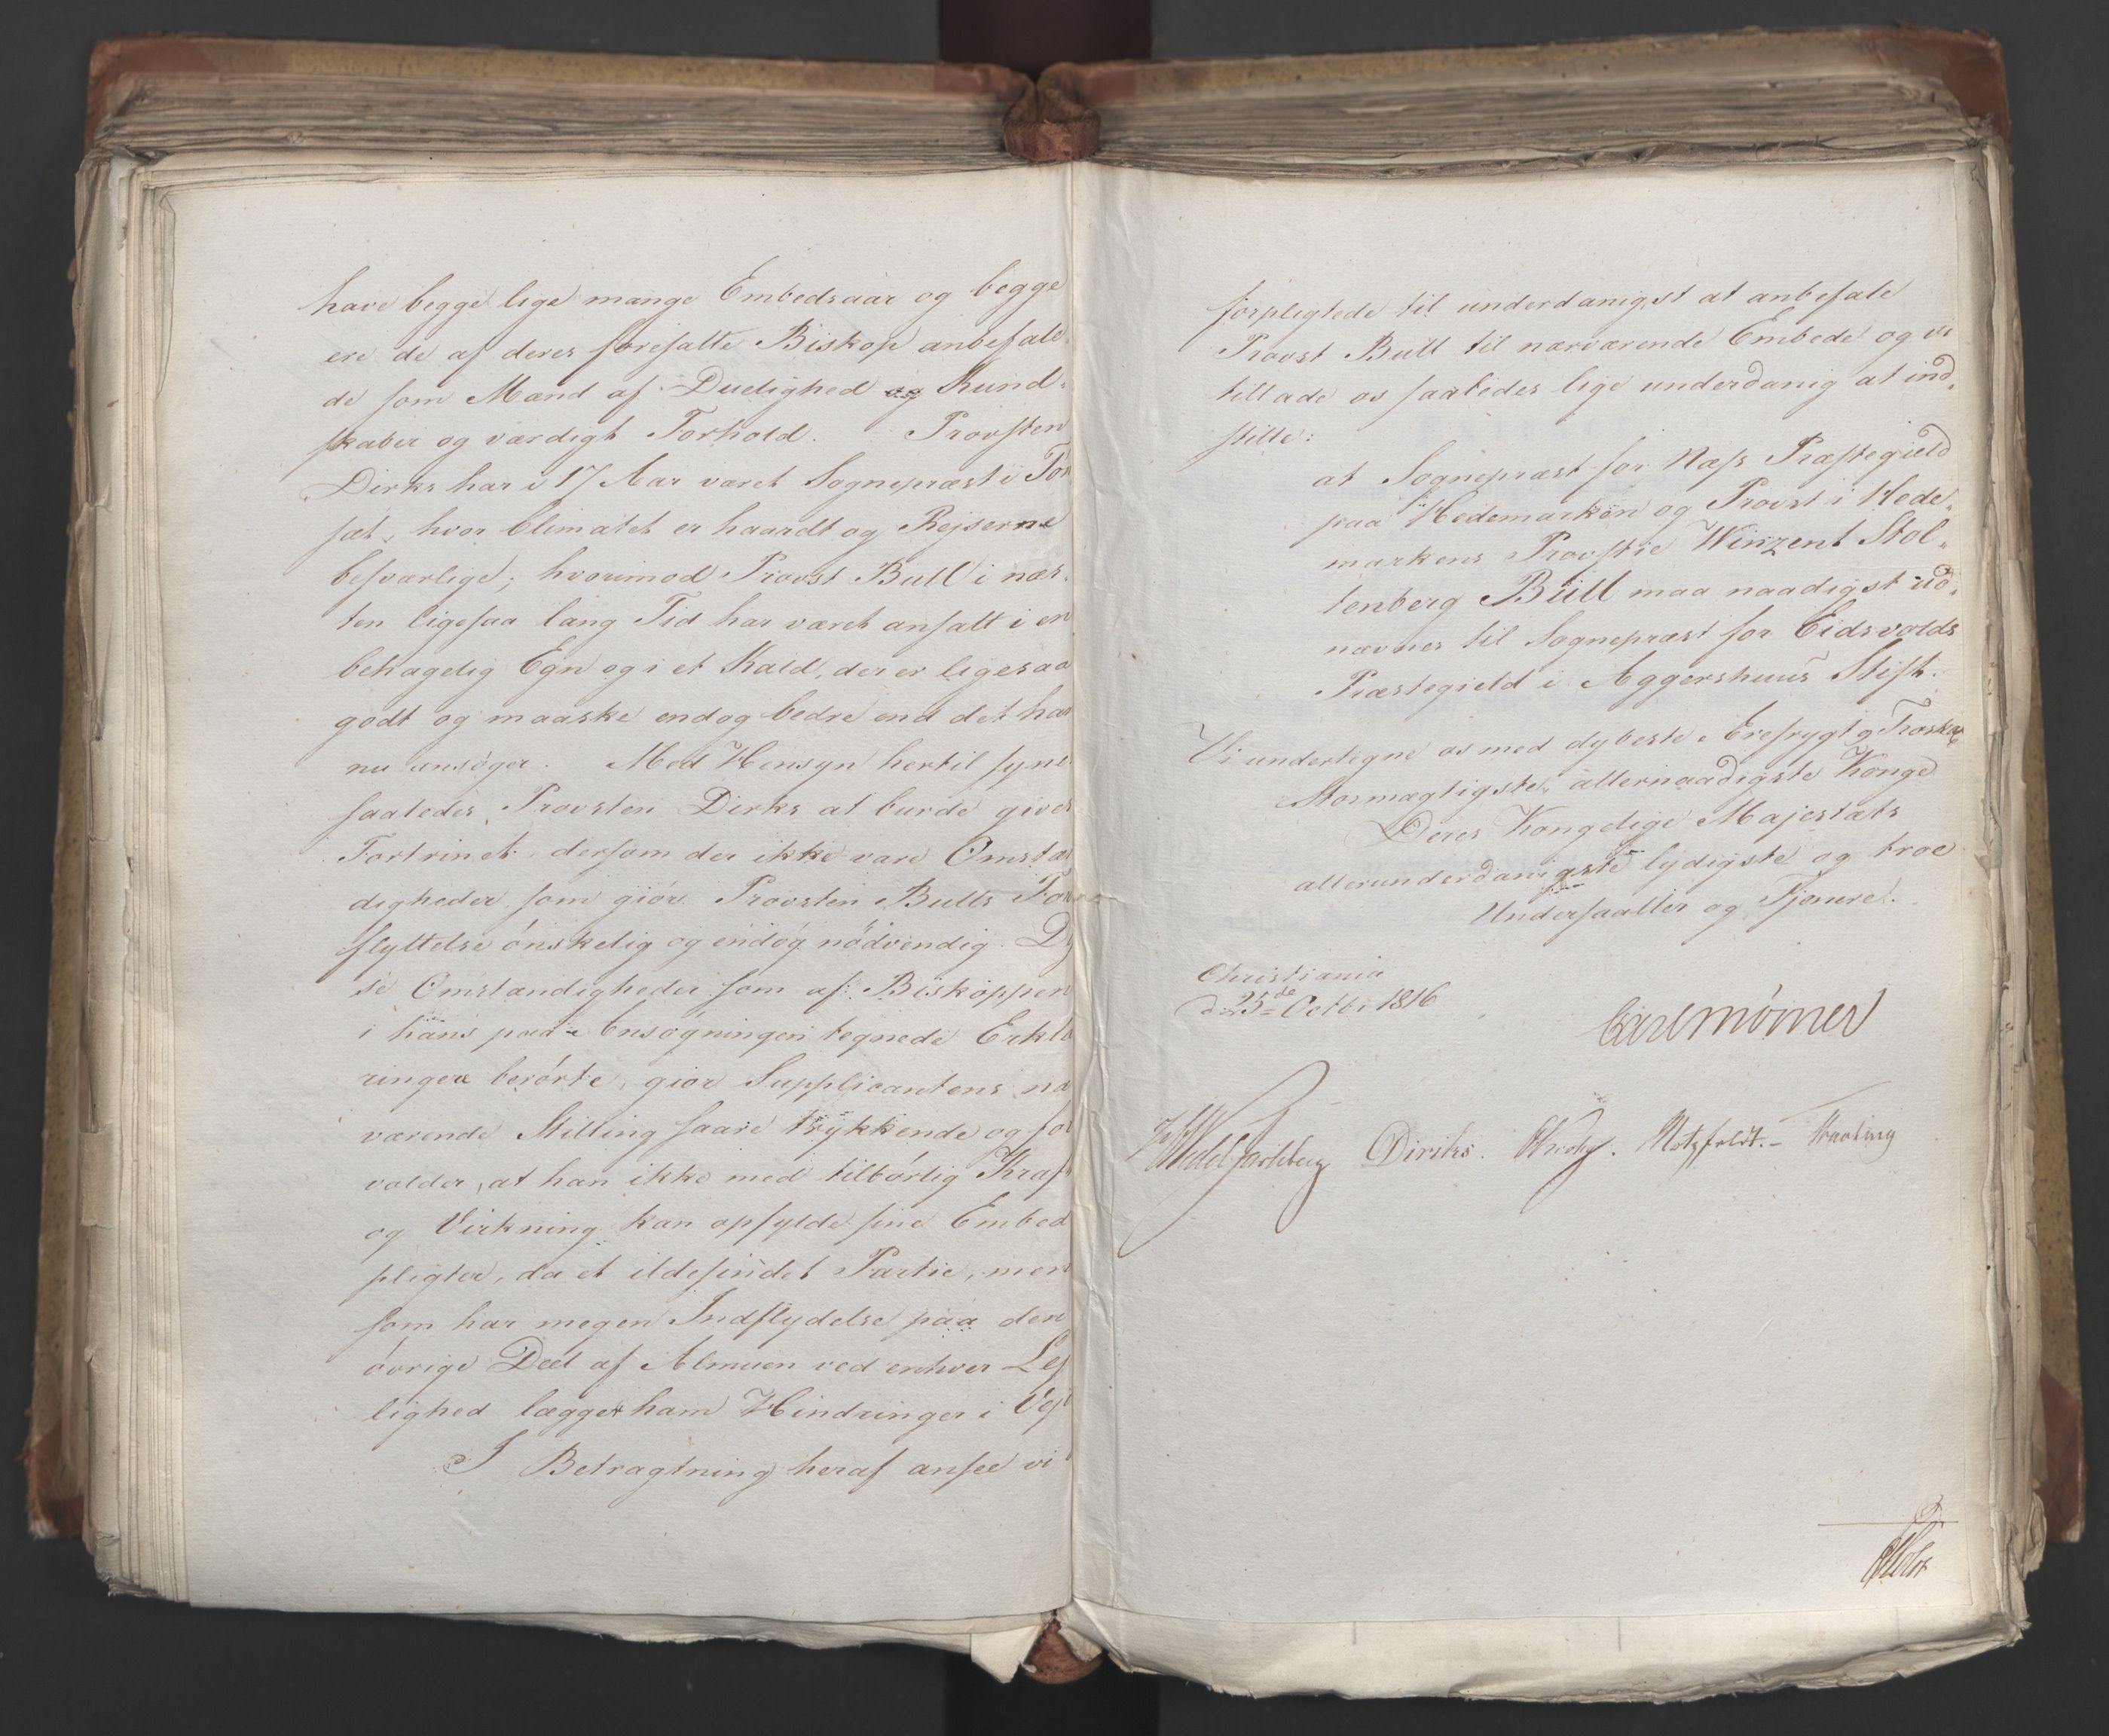 have begge lige mange Embedsaar og begge
ere de af deres foresatte Biskop anbefale¬
de som Mænd af Duelighed og Kund¬
skaber og værdigt Forhold. Provsten
Dirks har i 17 Aar været Sognepræst i Tør
set, hvor Climatet er haardt og Rejserne
besværlige; hvorimod Provst Bull i næs¬
ten ligesaa lang Tid har været ansatt i en
behagelig Egn og i et Kald, der er ligesaa
godt og maaske endog bedre end det han
nu ansøger. Med Hensyn hertil synes
saaledes Provsten Dirks at burde gives
Fortrinet, dersom der ikke vare Omstæn
digheder som giør Provsten Bulls For
flyttelse ønskelig og endog nødvendig. Di
se Omstændigheder som af Biskoppen
i hans paa Ansøgningen tegnede Erklæ
ringer berørte, giør Supplicantens nær
værende Stilling saare trykkende og for
volder, at han ikke med tilbørlig Kraft
og Virkning kan opfylde sine Embeds
pligter, da et ildesindet Partie, men
som har megen Indflydelse paa den
øvrige Deel af Almuen ved enhver Lej
lighed lægger ham Hindringer i Vej
I Betragtning heraf ansee vi
forpligtede til underdanigst at anbefale
Provst Bull til nærværende Embede og vi
tillade os saaledes lige underdanig at ind¬
stille:
at Sognepræst for Næss Præstegield
paa Hedemarken og Provst i Hede¬
markens Provstie Winzent Stol¬
tenberg Bull maa naadigst ud¬
nævnes til Sognepræst for Eidsvolds
Præstegield i Aggershuus Stift.
Vi undertegne os med dybeste Ærefrygt og Troskab
Stormægtigste, allernaadigste Konge
Deres Kongelige Majestæts
allerunderdanigste lydigste og troe
Undersaatter og Tjenere.
Christiania
d 25de Octbr 1816
Carl Mørner
Wedel Jarlsberg Diriks. Krohg. Motzfeldt. Treschow